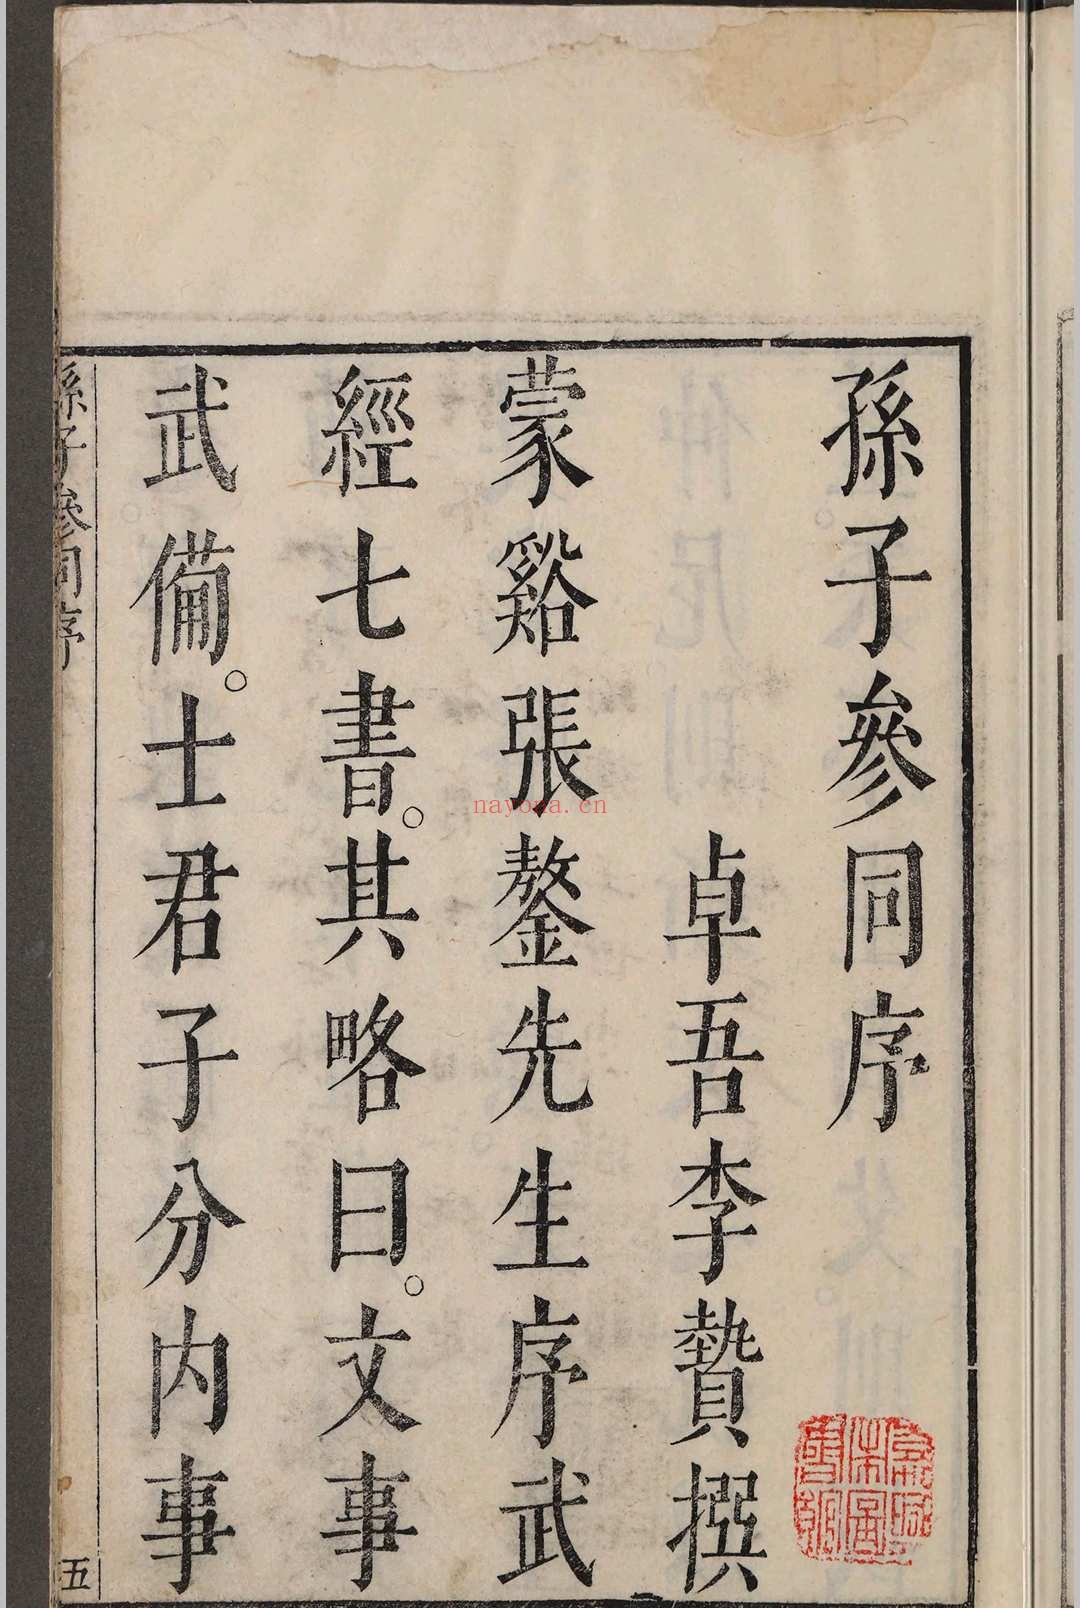 孫子參同序
卓吾李贄撰
蒙谿張鏊先生序武
經七書。其略曰。文事
武備。士君子分內事
孫子參同序
五
nayona.cn